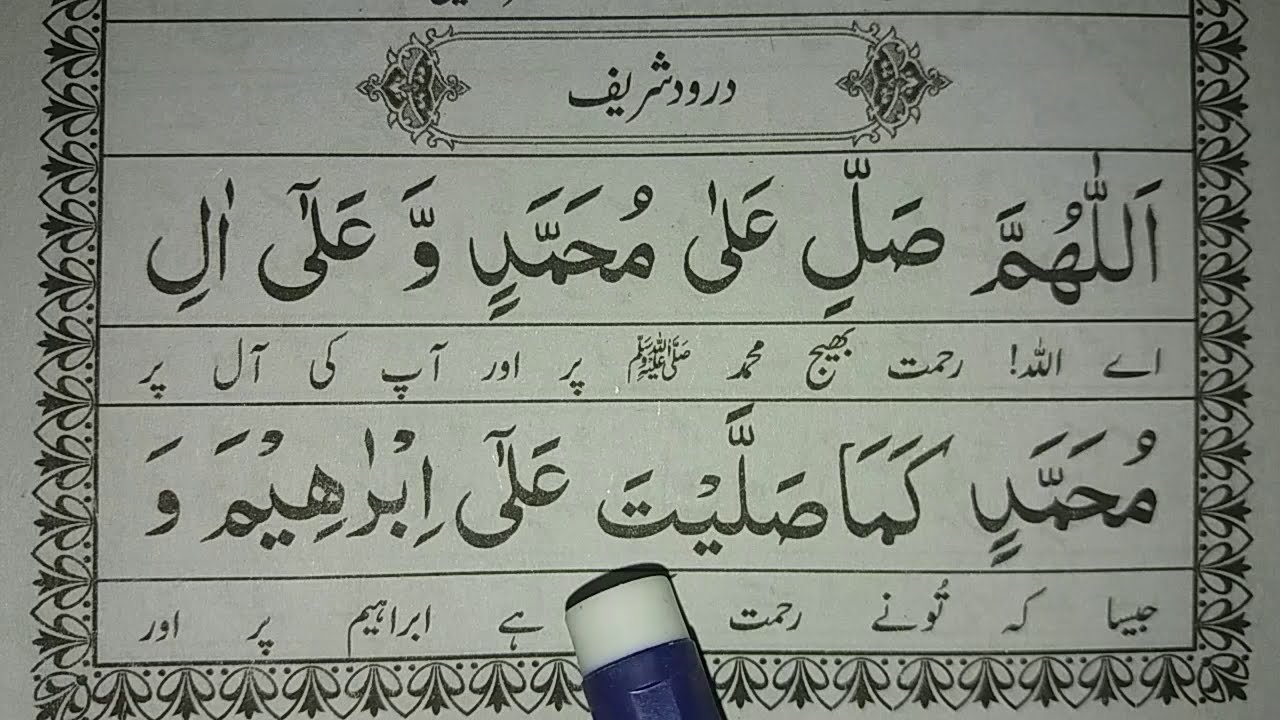 درود شریف
اَللّٰهُمَّ صَلِّ عَلٰی مُحَمَّدٍ وَّ عَلٰۤی اٰلِ
اے اللہ! رحمت بھیج محمد ﷺ پر اور آپ کی آل پر
مُحَمَّدٍ کَمَا صَلَّیْتَ عَلٰۤی اِبْرٰهِیْمَ وَ
جیسا کہ تُونے رحمت ہے ابراہیم پر اور